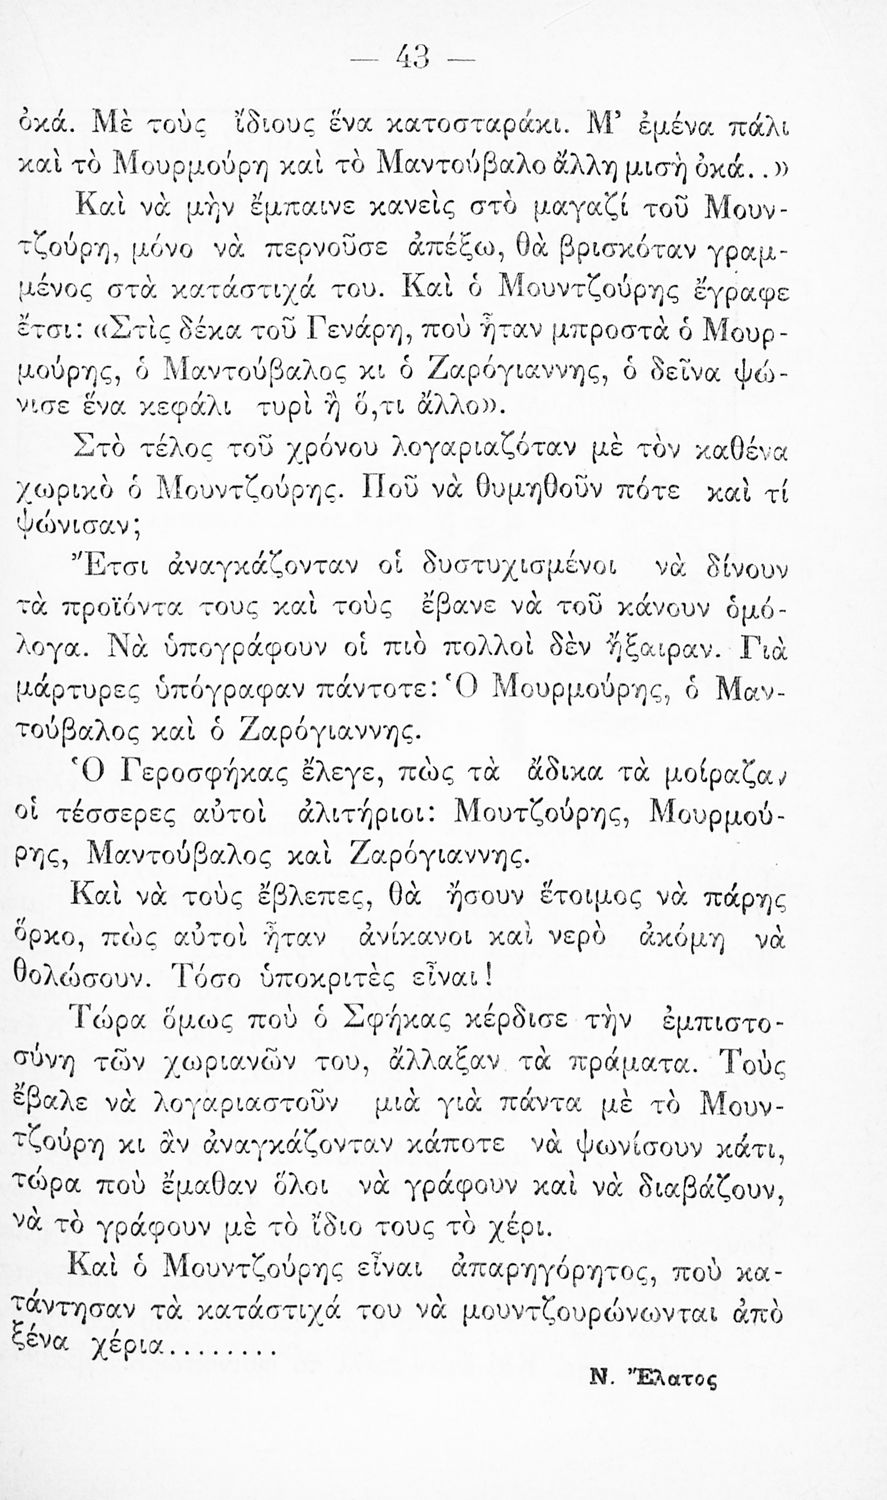 — 43 —
ὀκά. Μὲ τοὺς ἴδιους ἕνα κατοσταράκι. Μ’ ἐμένα πάλι
καὶ τὸ Μουρμούρη καὶ τὸ Μαντούβαλο ἄλλη μισὴ ὀκά. . »
Καὶ νὰ μὴν ἔμπαινε κανεὶς στὸ μαγαζί τοῦ Μουν-
τζούρη, μόνο νὰ περνοῦσε ἀπέξω, θὰ βρισκόταν γραμ-
μένος στὰ κατάστιχά του. Καὶ ὁ Μουντζούρης ἔγραφε
ἔτσι: «Στὶς δέκα τοῦ Γενάρη, ποὺ ἦταν μπροστὰ ὁ Μουρ-
μούρης, ὁ Μαντούβαλος κι ὁ Ζαρόγιαννης, ὁ δεῖνα ψώ-
νισε ἕνα κεφάλι τυρὶ ἢ ὅ,τι ἄλλο».
Στὸ τέλος τοῦ χρόνου λογαριαζόταν μὲ τὸν καθένα
χωρικὸ ὁ Μουντζούρης. Ποῦ νὰ θυμηθοῦν πότε καὶ τί
ψώνισαν;
Ἔτσι ἀναγκάζονταν οἱ δυστυχισμένοι νὰ δίνουν
τὰ προϊόντα τους καὶ τοὺς ἔβανε νὰ τοῦ κάνουν ὁμό-
λογα. Νὰ ὑπογράφουν οἱ πιὸ πολλοὶ δὲν ἤξαιραν. Γιὰ
μάρτυρες ὑπόγραφαν πάντοτε: Ὁ Μουρμούρης, ὁ Μαν-
τούβαλος καὶ ὁ Ζαρόγιαννης.
Ὁ Γεροσφήκας ἔλεγε, πὼς τὰ ἄδικα τὰ μοίραζαν
οἱ τέσσερες αὐτοὶ ἀλιτήριοι: Μουτζούρης, Μουρμού-
ρης, Μαντούβαλος καὶ Ζαρόγιαννης.
Καὶ νὰ τοὺς ἔβλεπες, θὰ ἤσουν ἕτοιμος νὰ πάρης
ὅρκο, πὼς αὐτοὶ ἦταν ἀνίκανοι καὶ νερὸ ἀκόμη νὰ
θολώσουν. Τόσο ὑποκριτὲς εἶναι!
Τώρα ὅμως ποὺ ὁ Σφήκας κέρδισε τὴν ἐμπιστο-
σύνη τῶν χωριανῶν του, ἄλλαξαν τὰ πράματα. Τοὺς
ἔβαλε νὰ λογαριαστοῦν μιὰ γιὰ πάντα μὲ τὸ Μουν-
τζούρη κι ἂν ἀναγκάζονταν κάποτε νὰ ψωνίσουν κάτι,
τώρα ποὺ ἔμαθαν ὅλοι νὰ γράφουν καὶ νὰ διαβάζουν,
νὰ τὸ γράφουν μὲ τὸ ἴδιο τους τὸ χέρι.
Καὶ ὁ Μουντζούρης εἶναι ἀπαρηγόρητος, ποὺ κα-
τάντησαν τὰ κατάστιχά του νὰ μουντζουρώνωνται ἀπὸ
ξένα χέρια.........
Ν. Ἔλατος